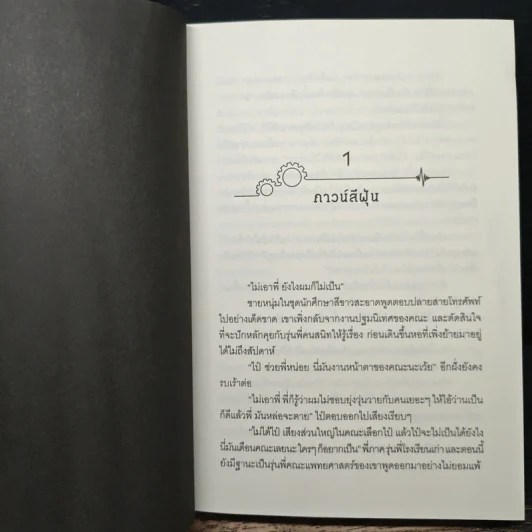 1
ภาวน์สีฝุ่น
"ไม่เอาพี่ ยังไงผมก็ไม่เป็น"
ชายหนุ่มในชุดนักศึกษาสีขาวสะอาดพูดตอบปลายสายโทรศัพท์
ไปอย่างเด็ดขาด เขาเพิ่งกลับจากงานปฐมนิเทศของคณะ และตัดสินใจ
ที่จะปักหลักคุยกับรุ่นพี่คนสนิทให้รู้เรื่อง ก่อนเดินขึ้นหอที่เพิ่งย้ายมาอยู่
ได้ไม่ถึงสัปดาห์
"ไป๋ ช่วยพี่หน่อย นี่มันงานหน้าตาของคณะนะเว้ย" อีกฝั่งยังคง
รบเร้าต่อ
"ไม่เอาพี่ พี่ก็รู้ว่าผมไม่ชอบยุ่งวุ่นวายกับคนเยอะๆ ให้ไอ้ว่านเป็น
ก็ดีแล้วพี่ มันหล่อจะตาย" ไป๋ตอบออกไปเสียงเรียบๆ
"ไม่ได้ไป๋ เสียงส่วนใหญ่ในคณะเลือกไป๋ แล้วไป๋จะไม่เป็นได้ยังไง
นี่มันเดือนคณะเลยนะ ใครๆ ก็อยากเป็น" พี่ภาค รุ่นพี่โรงเรียนเก่า และตอนนี้
ยังมีฐานะเป็นรุ่นพี่คณะแพทยศาสตร์ของเขาพูดออกมาอย่างไม่ยอมแพ้